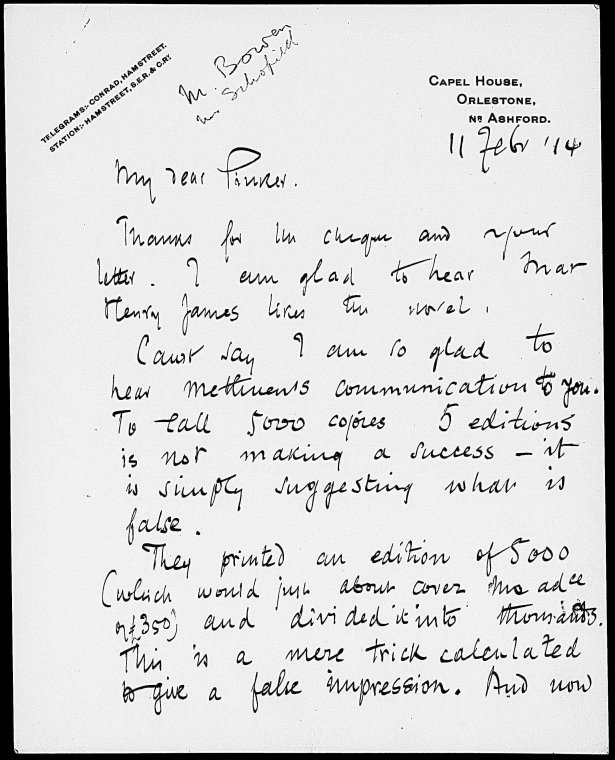 TELEGRAMS:- CONRAD, HAMSTREET.
STATION:- HAMSTREET, S.E.R. & C.RY.
M. Bowen
Schofield
CAPEL HOUSE,
ORLESTONE,
NR ASHFORD.
11 Febr '14
My dear Pinker.
Thanks for the cheque and your
letter. I am glad to hear that
Henry James likes the novel.
Cannot say I am so glad to
hear Methuen's communication to you.
To call 5000 copies 5 editions
is not making a success – it
is simply suggesting what is
false.
They printed an edition of 5000
(which would just about cover the adce
of £350) and divided it into thousands.
This is a mere trick calculated
to give a false impression. And now